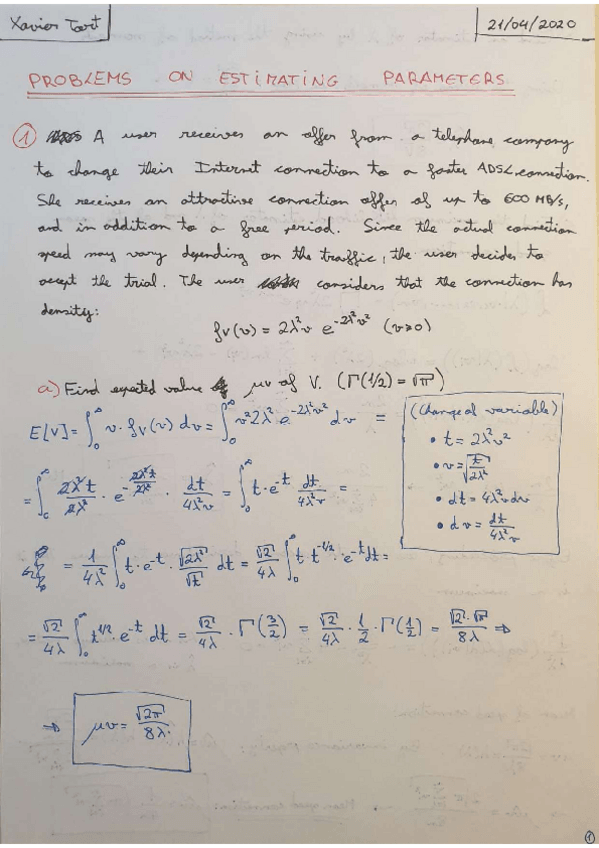 Xavier Tort
21/04/2020
PROBLEMS ON ESTIMATING PARAMETERS
① A user receives an offer from a telephone company
to change their Internet connection to a faster ADSL connection.
She receives an attractive connection offer of up to 600 MB/s,
and in addition to a free period. Since the actual connection
speed may vary depending on the traffic, the user decides to
accept the trial. The user considers that the connection has
density:
fV(v) = 2λ²v e^{-2λ²v²} (v≥0)
a) Find expected value μv of V. (Γ(1/2) = √π)
E[V] = ∫₀^∞ v · fV(v) dv = ∫₀^∞ v² 2λ² e^{-2λ²v²} dv =
(Change of variable)
• t = 2λ²v²
• v = √t/√2λ²
• dt = 4λ²v dv
• dv = dt/4λ²v
= ∫₀^∞ 2λ²t/2λ² · e^{-2λ²t/2λ²} · dt/4λ²v = ∫₀^∞ t · e^{-t} dt/4λ²v =
= 1/4λ² ∫₀^∞ t · e^{-t} · √2λ²/√t dt = √2/4λ ∫₀^∞ t t^{-1/2} · e^{-t} dt =
= √2/4λ ∫₀^∞ t^{1/2} · e^{-t} dt = √2/4λ · Γ(3/2) = √2/4λ · 1/2 · Γ(1/2) = √2 · √π/8λ ⇒
⇒ μv = √2π/8λ
①